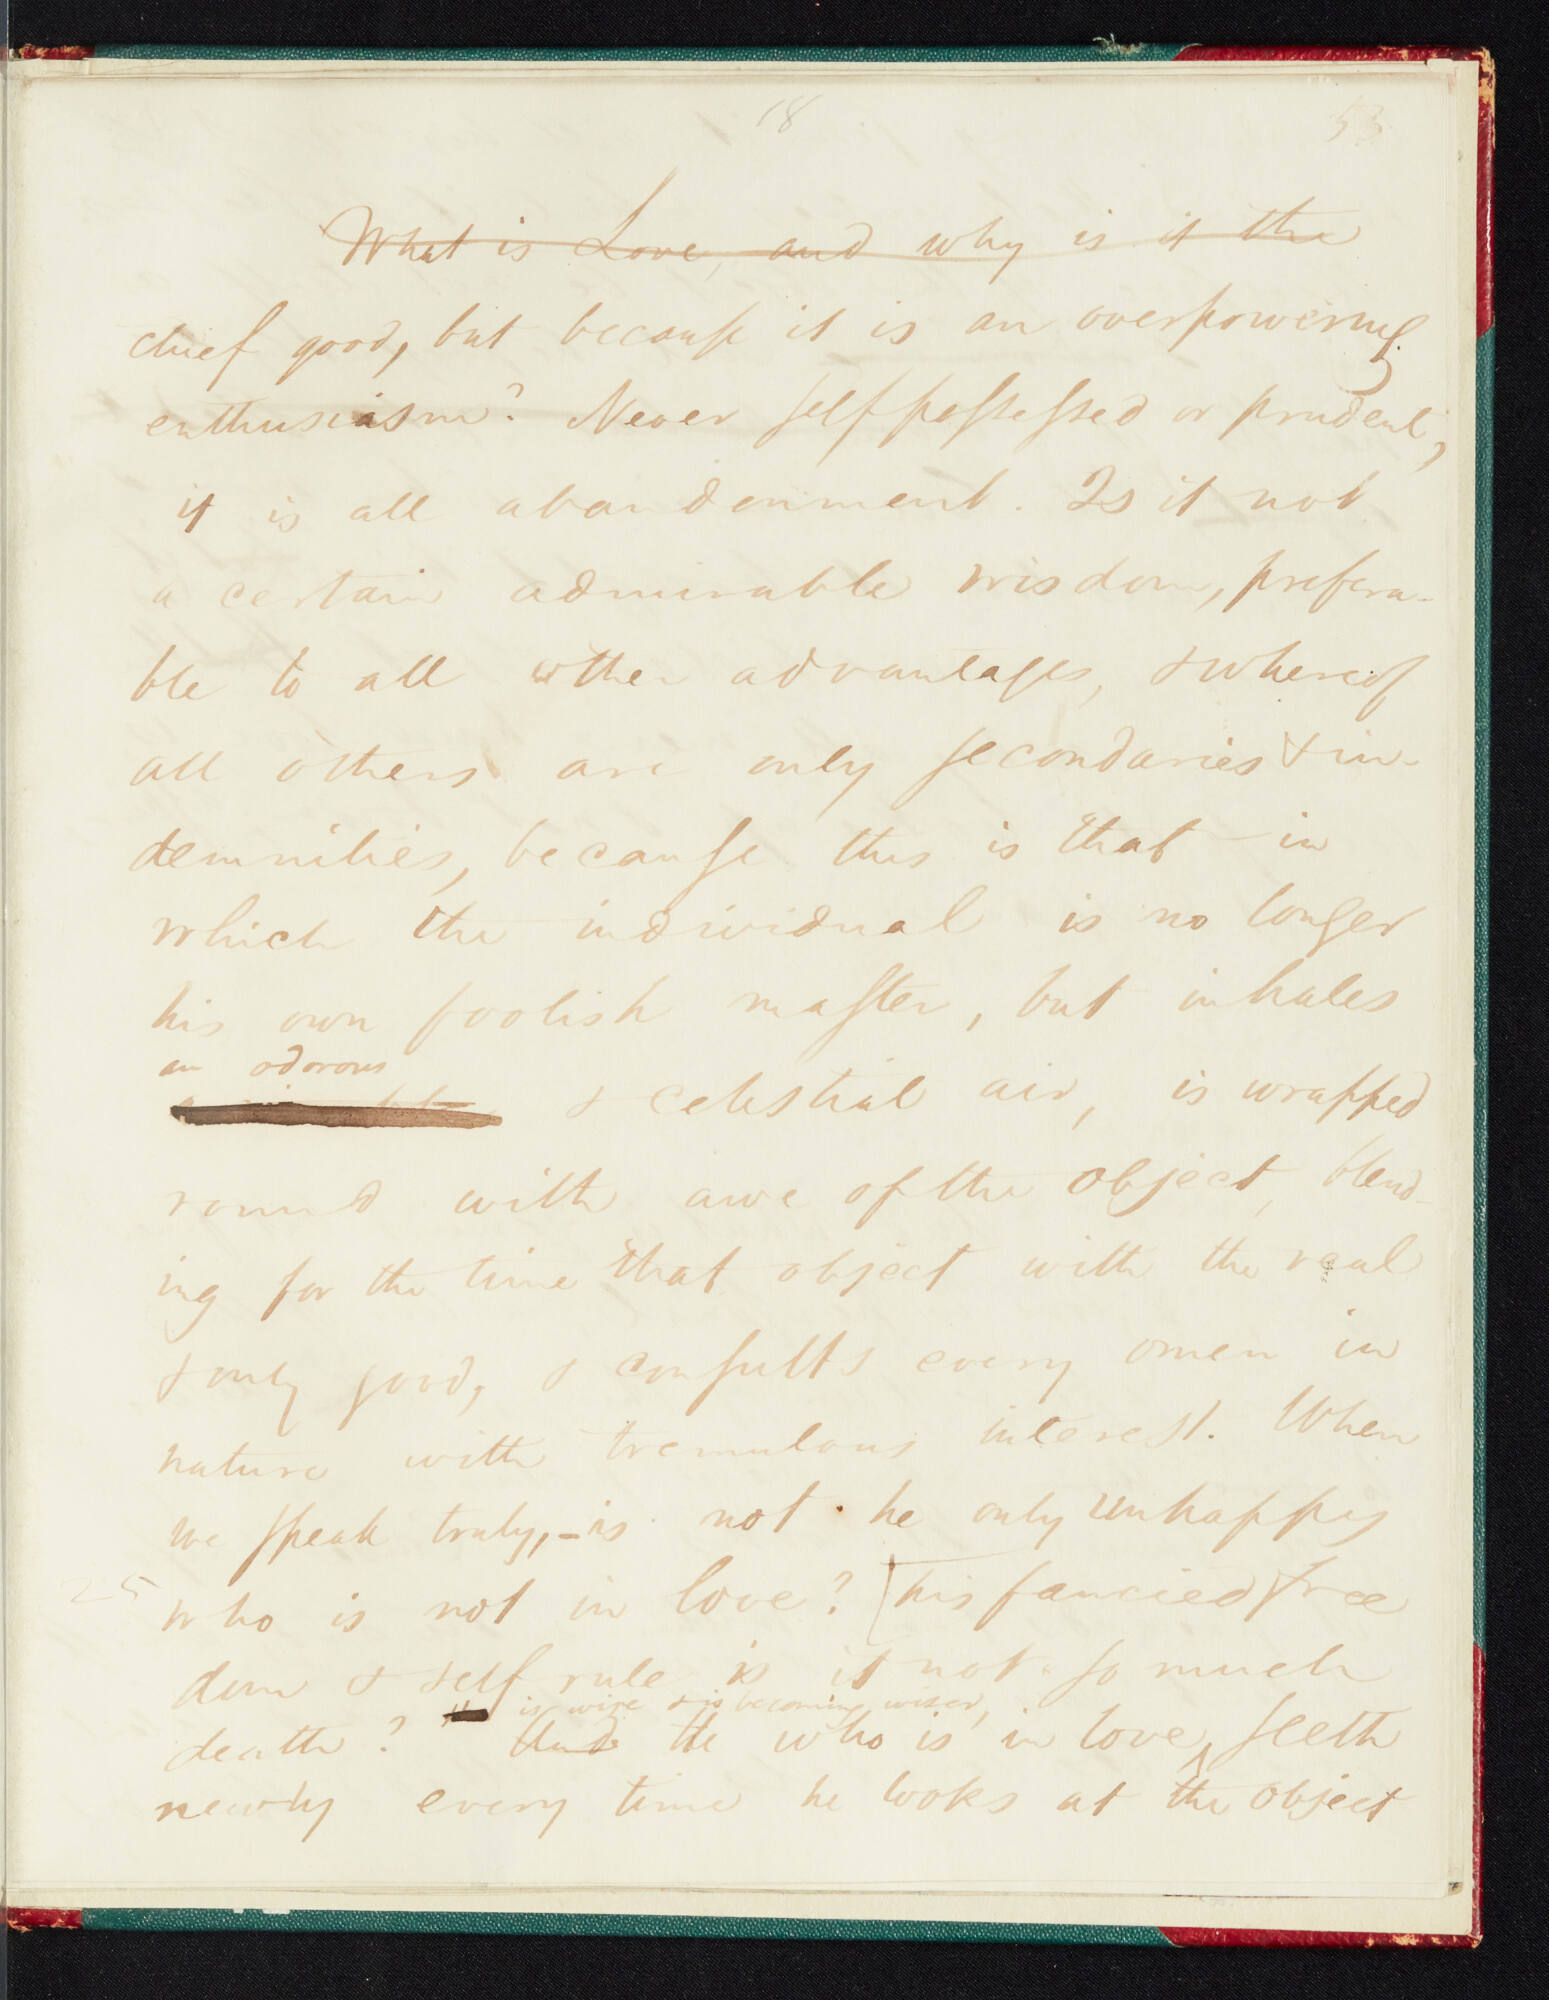 18 53
What is Love, and why is it the
chief good, but because it is an overpowering
enthusiasm? Never self possessed or prudent,
it is all abandonment. Is it not
a certain admirable wisdom, prefera-
ble to all other advantages, & whereof
all others are only secondaries & in-
demnities, because this is that in
which the individual is no longer
his own foolish master, but inhales
an odorous
& celestial air, is wrapped
round with awe of the object, blend-
ing for the time that object with the real
& only good, & consults every omen in
nature with tremulous interest. When
we speak truly, – is not he only unhappy
25 who is not in love? [his fancied free
dom & self rule is it not so much
is wise & is becoming wiser,
death? And He who is in love, seeth
newly every time he looks at the object